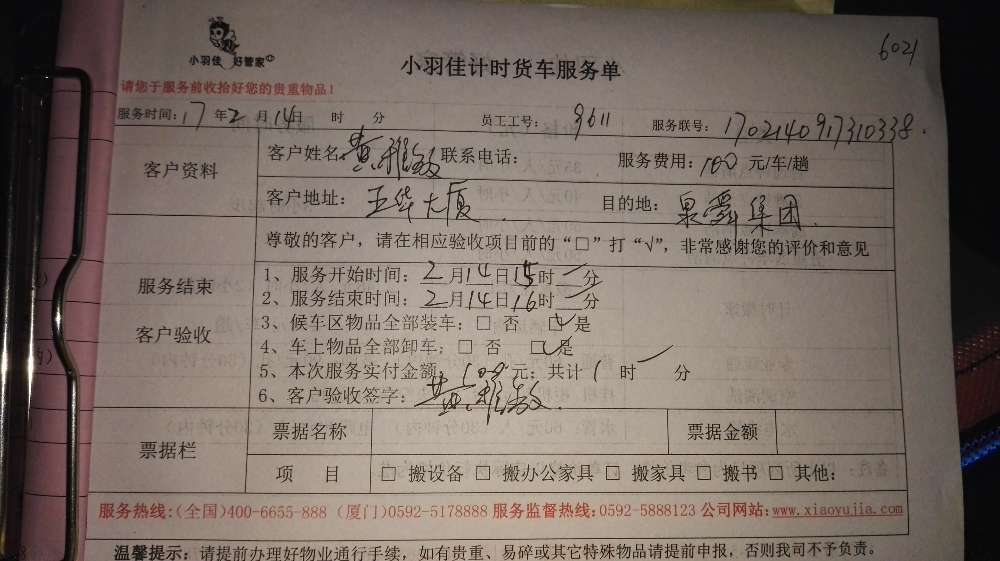 6021
小羽佳 好管家
小羽佳计时货车服务单
请您于服务前收拾好您的贵重物品！
服务时间：17年2月14日 时 分 员工工号：3611 服务联号：1702140917310338.
客户资料
客户姓名：黄雅敏 联系电话： 服务费用：100元/车/趟
客户地址：五华大厦. 目的地：泉舜集团.
尊敬的客户，请在相应验收项目前的“□”打“√”，非常感谢您的评价和意见
服务结束
客户验收
1、服务开始时间：2月14日15时一分
2、服务结束时间：2月14日16时一分
3、候车区物品全部装车：□ 否 ☑是
4、车上物品全部卸车：□ 否 ☑是
5、本次服务实付金额：100元；共计1时一分
6、客户验收签字：黄雅敏.
票据栏
票据名称 票据金额
项 目 □ 搬设备 □ 搬办公家具 □ 搬家具 □ 搬书 □ 其他：
服务热线：(全国)400-6655-888 (厦门)0592-5178888 服务监督热线：0592-5888123 公司网站：www.xiaoyujia.com
温馨提示：请提前办理好物业通行手续，如有贵重、易碎或其它特殊物品请提前申报，否则我司不予负责。